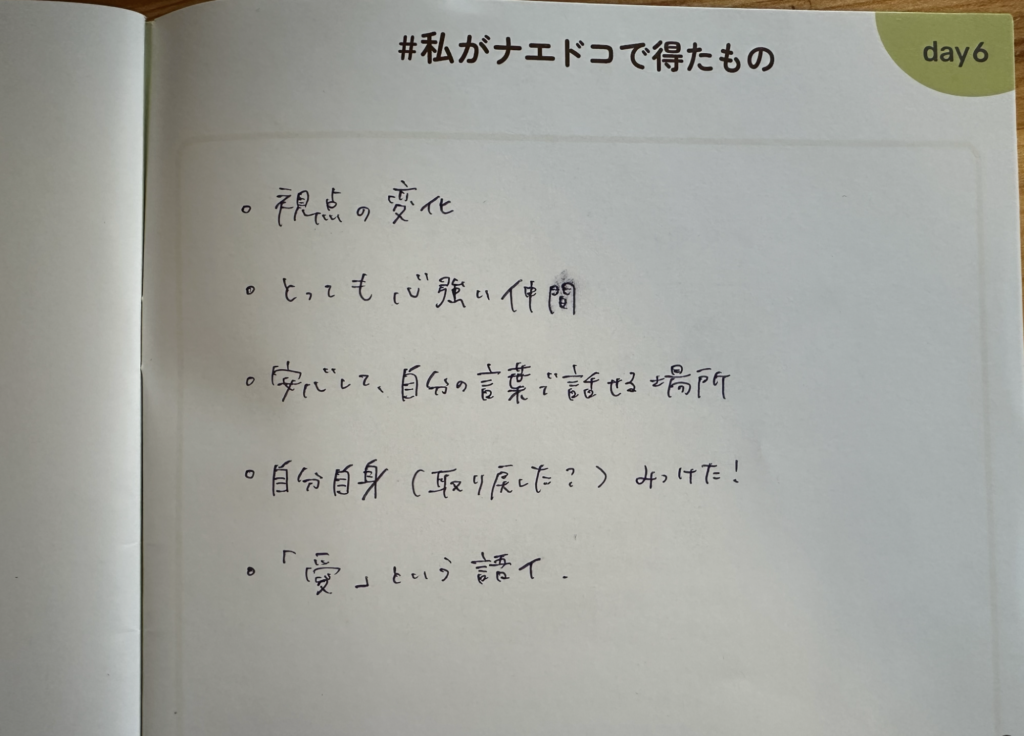 #私がナエドコで得たもの
day6
◦ 視点の変化
◦ とっても心強い仲間
◦ 安心して、自分の言葉で話せる場所
◦ 自分自身（取り戻した？）みつけた！
◦ 「愛」という語イ.